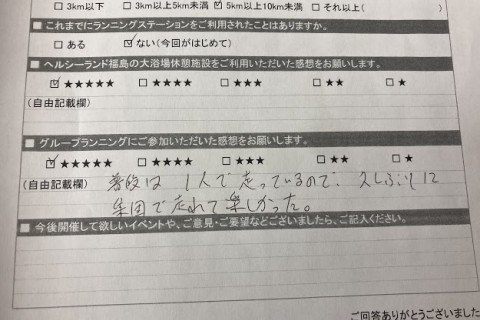 □ 3km以下 □ 3km以上5km未満 ☑ 5km以上10km未満 □ それ以上( )
■ これまでにランニングステーションをご利用されたことはありますか。
□ ある ☑ ない(今回がはじめて)
■ ヘルシーランド福島の大浴場休憩施設をご利用いただいた感想をお願いします。
☑ ★★★★★ □ ★★★★ □ ★★★ □ ★★ □ ★
(自由記載欄)
■ グループランニングにご参加いただいた感想をお願いします。
☑ ★★★★★ □ ★★★★ □ ★★★ □ ★★ □ ★
(自由記載欄) 普段は1人で走っているので、久しぶりに
集団で走れて楽しかった。
■ 今後開催して欲しいイベントや、ご意見・ご要望などございましたら、ご記入ください。
ご回答ありがとうございました